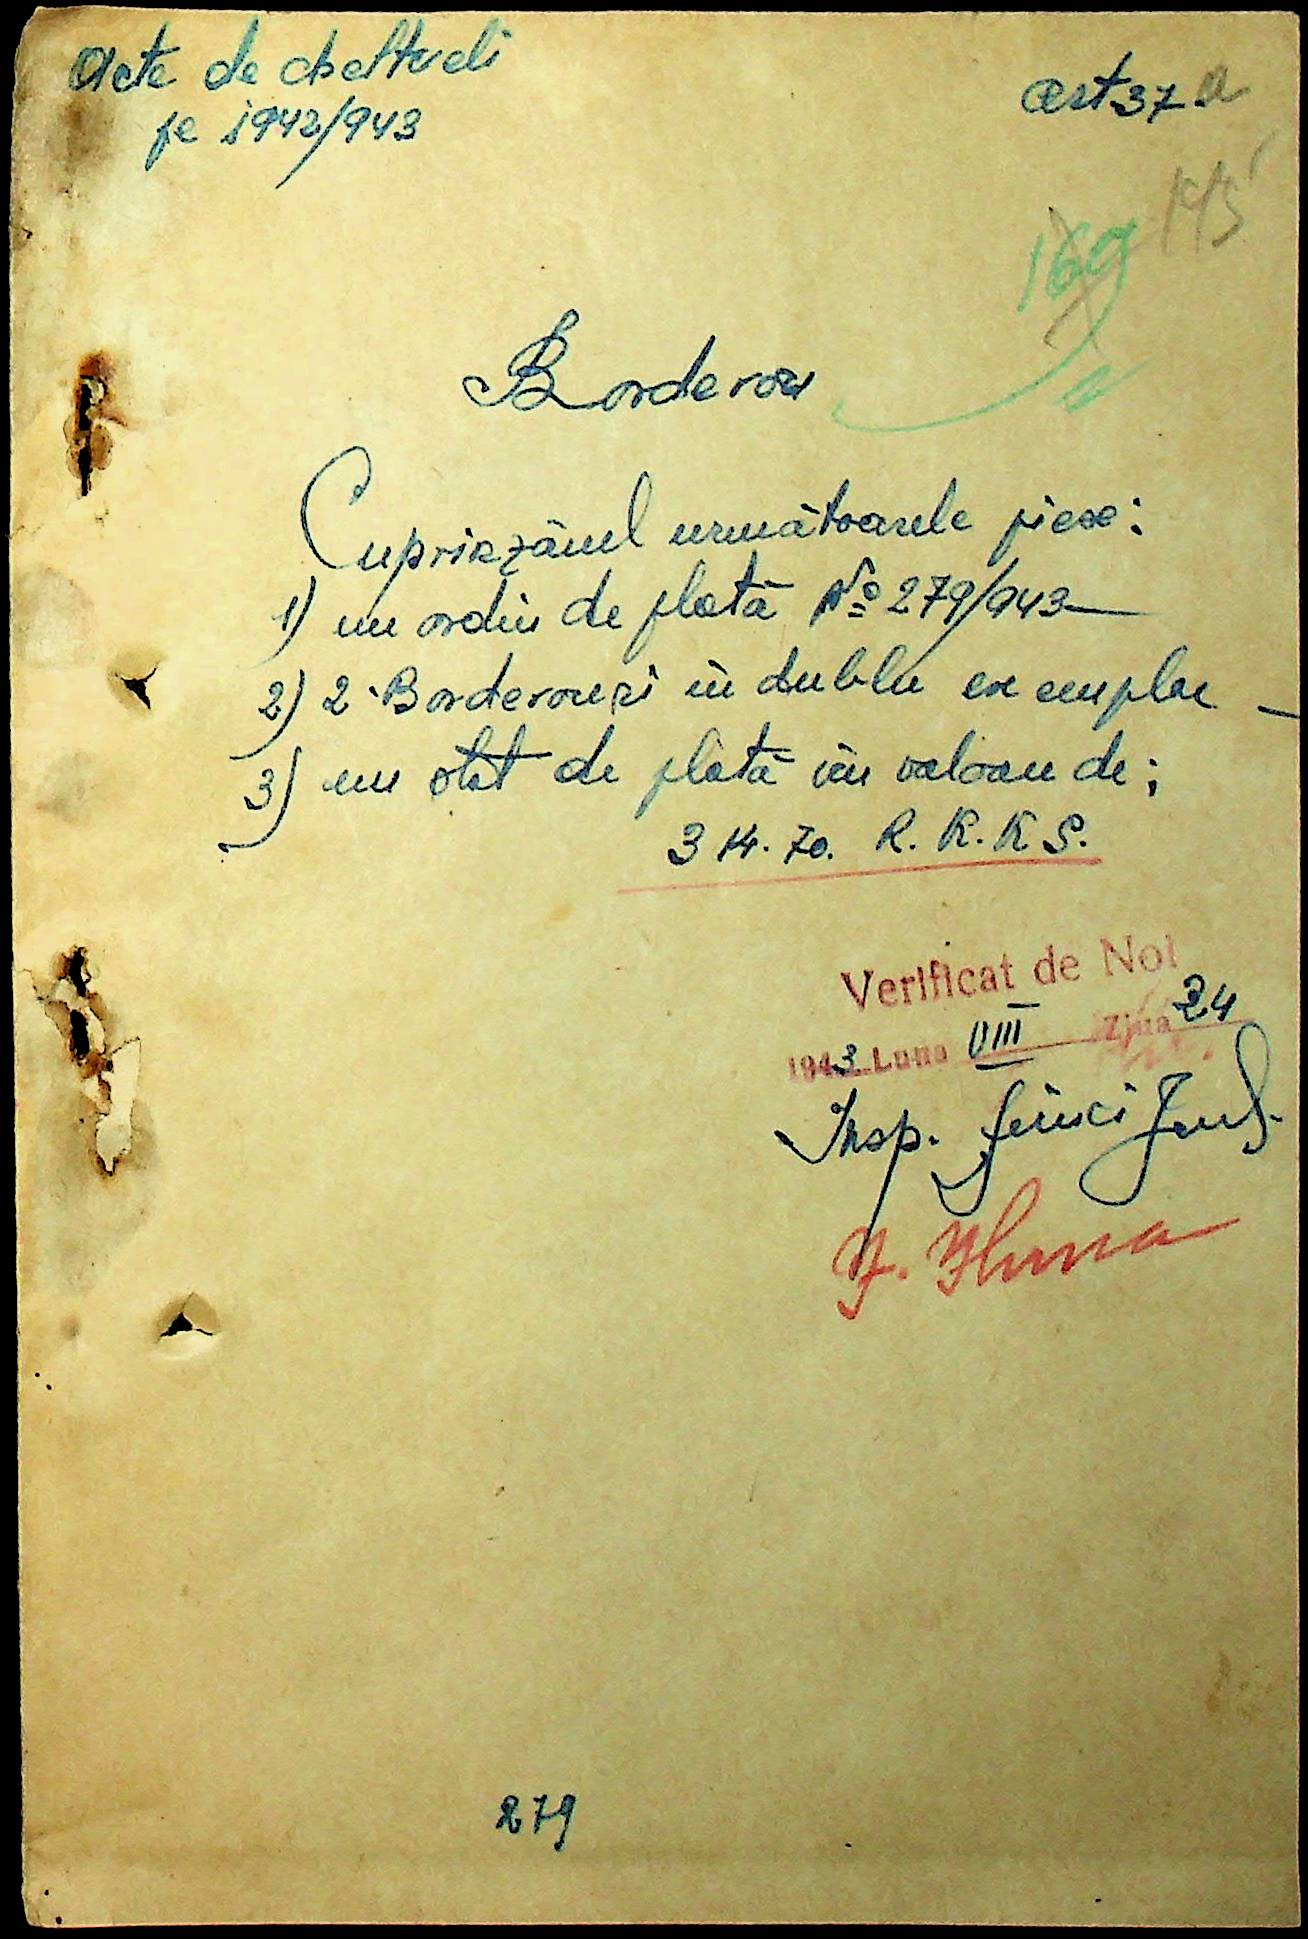 Acte de cheltueli
pe 1942/943
art 37 a
145
169
Borderou
Cuprinzând următoarele piese:
1) un ordin de plată № 279/943
2) 2 Borderouri in dublu exemplar
3) un stat de plată in valoare de:
314.70. R.K.K.S.
Verificat de Noi
1943 Luna VIII Ziua 24
Insp.
279